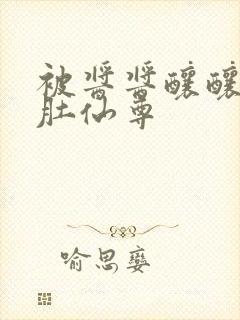 被酱酱酿酿
肚仙尊
喻思嬖